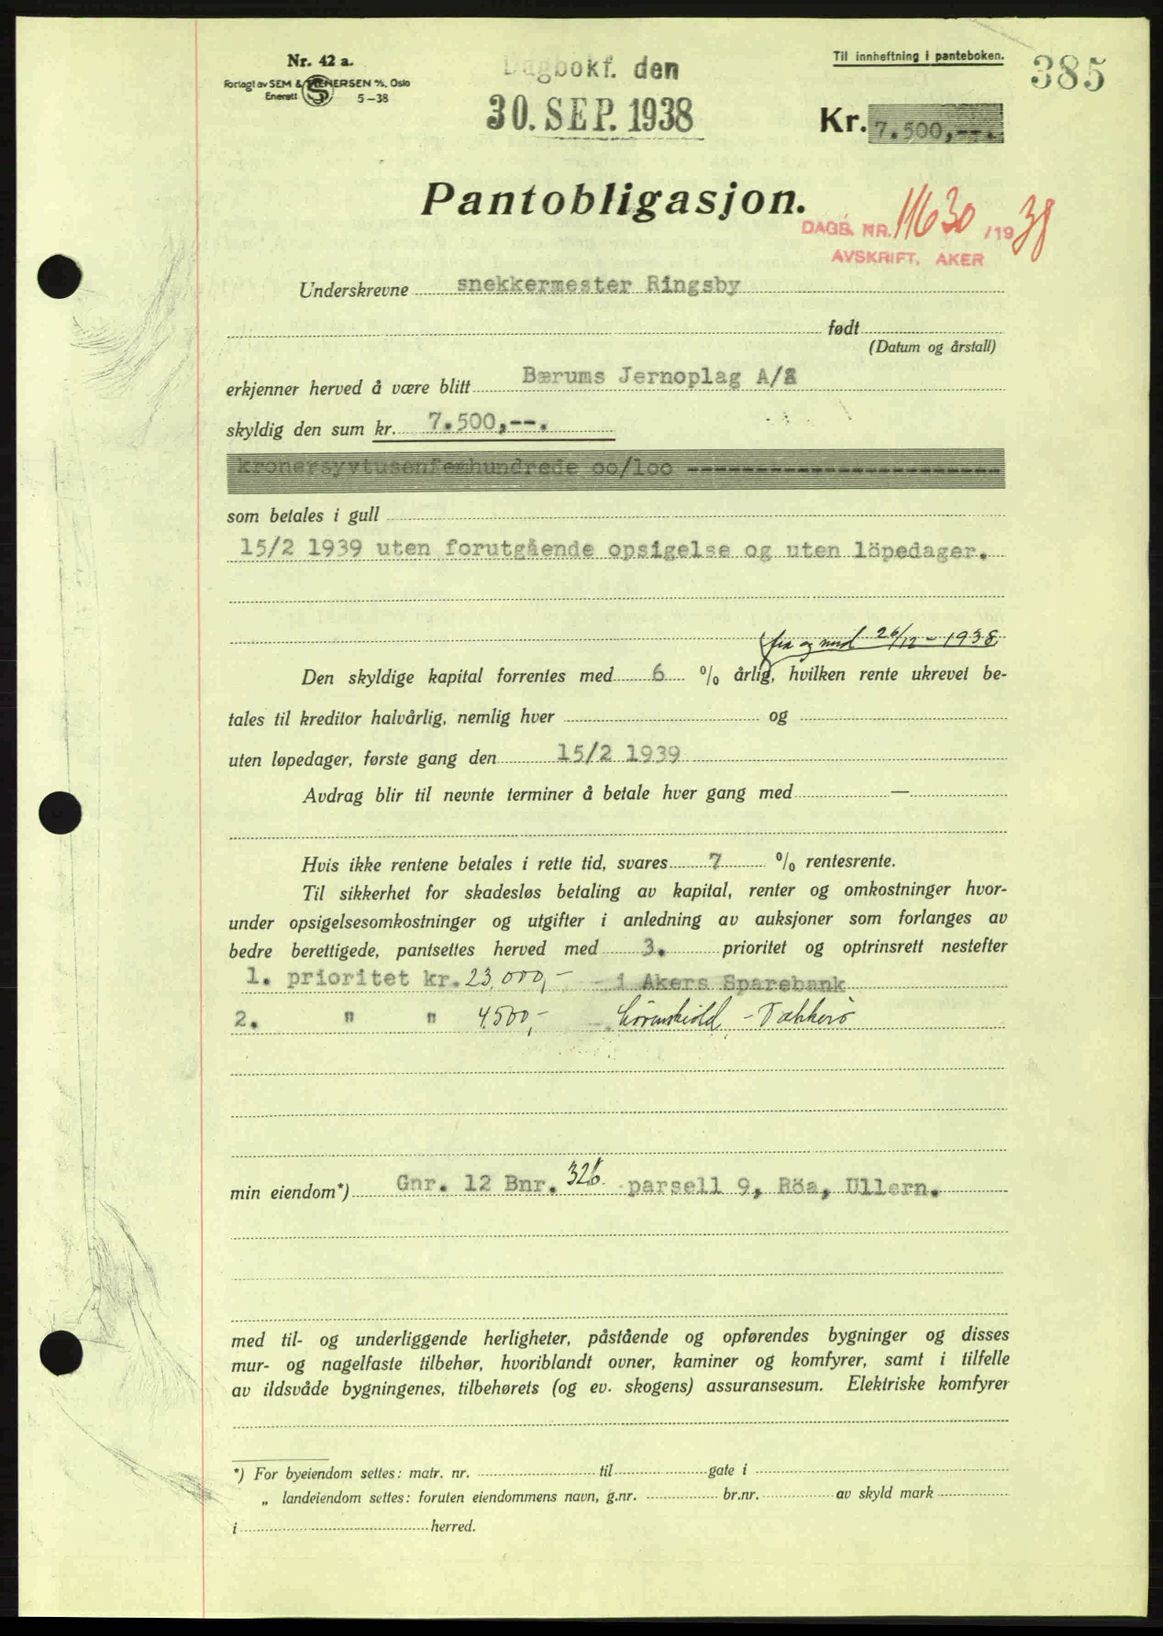 Nr. 42 a.
Forlagt av SEM & STENERSEN A/S, Oslo
Enerett 5-38
Dagbokf. den
30. SEP. 1938
Til innheftning i panteboken.
385
Kr. 7.500,--.
Pantobligasjon.
DAGB. NR. 11630/1938
AVSKRIFT, AKER
Underskrevne snekkermester Ringsby
født
(Datum og årstall)
erkjenner herved å være blitt Bærums Jernoplag A/S
skyldig den sum kr. 7.500,--.
kronersyvtusenfemhundrede oo/loo ----------------------
som betales i gull
15/2 1939 uten forutgående opsigelse og uten löpedager.
fra og med 26/12 - 1938
Den skyldige kapital forrentes med 6 % årlig, hvilken rente ukrevet be-
tales til kreditor halvårlig, nemlig hver og
uten løpedager, første gang den 15/2 1939
Avdrag blir til nevnte terminer å betale hver gang med —
Hvis ikke rentene betales i rette tid, svares 7 % rentesrente.
Til sikkerhet for skadesløs betaling av kapital, renter og omkostninger hvor-
under opsigelsesomkostninger og utgifter i anledning av auksjoner som forlanges av
bedre berettigede, pantsettes herved med 3. prioritet og optrinsrett nestefter
1. prioritet kr. 23,000,- - i Akers Sparebank
2. " " 4500,- - Lövenskiold - Vækkerö
min eiendom*) Gnr. 12 Bnr. 326 parsell 9, Röa, Ullern.
med til- og underliggende herligheter, påstående og opførendes bygninger og disses
mur- og nagelfaste tilbehør, hvoriblandt ovner, kaminer og komfyrer, samt i tilfelle
av ildsvåde bygningenes, tilbehørets (og ev. skogens) assuransesum. Elektriske komfyrer
*) For byeiendom settes: matr. nr. til gate i
„ landeiendom settes: foruten eiendommens navn, g.nr. br.nr. av skyld mark
i herred.